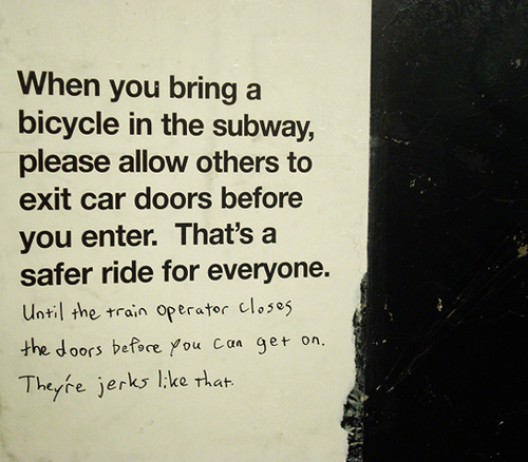 When you bring a
bicycle in the subway,
please allow others to
exit car doors before
you enter. That's a
safer ride for everyone.
Until the train operator closes
the doors before you can get on.
They're jerks like that.